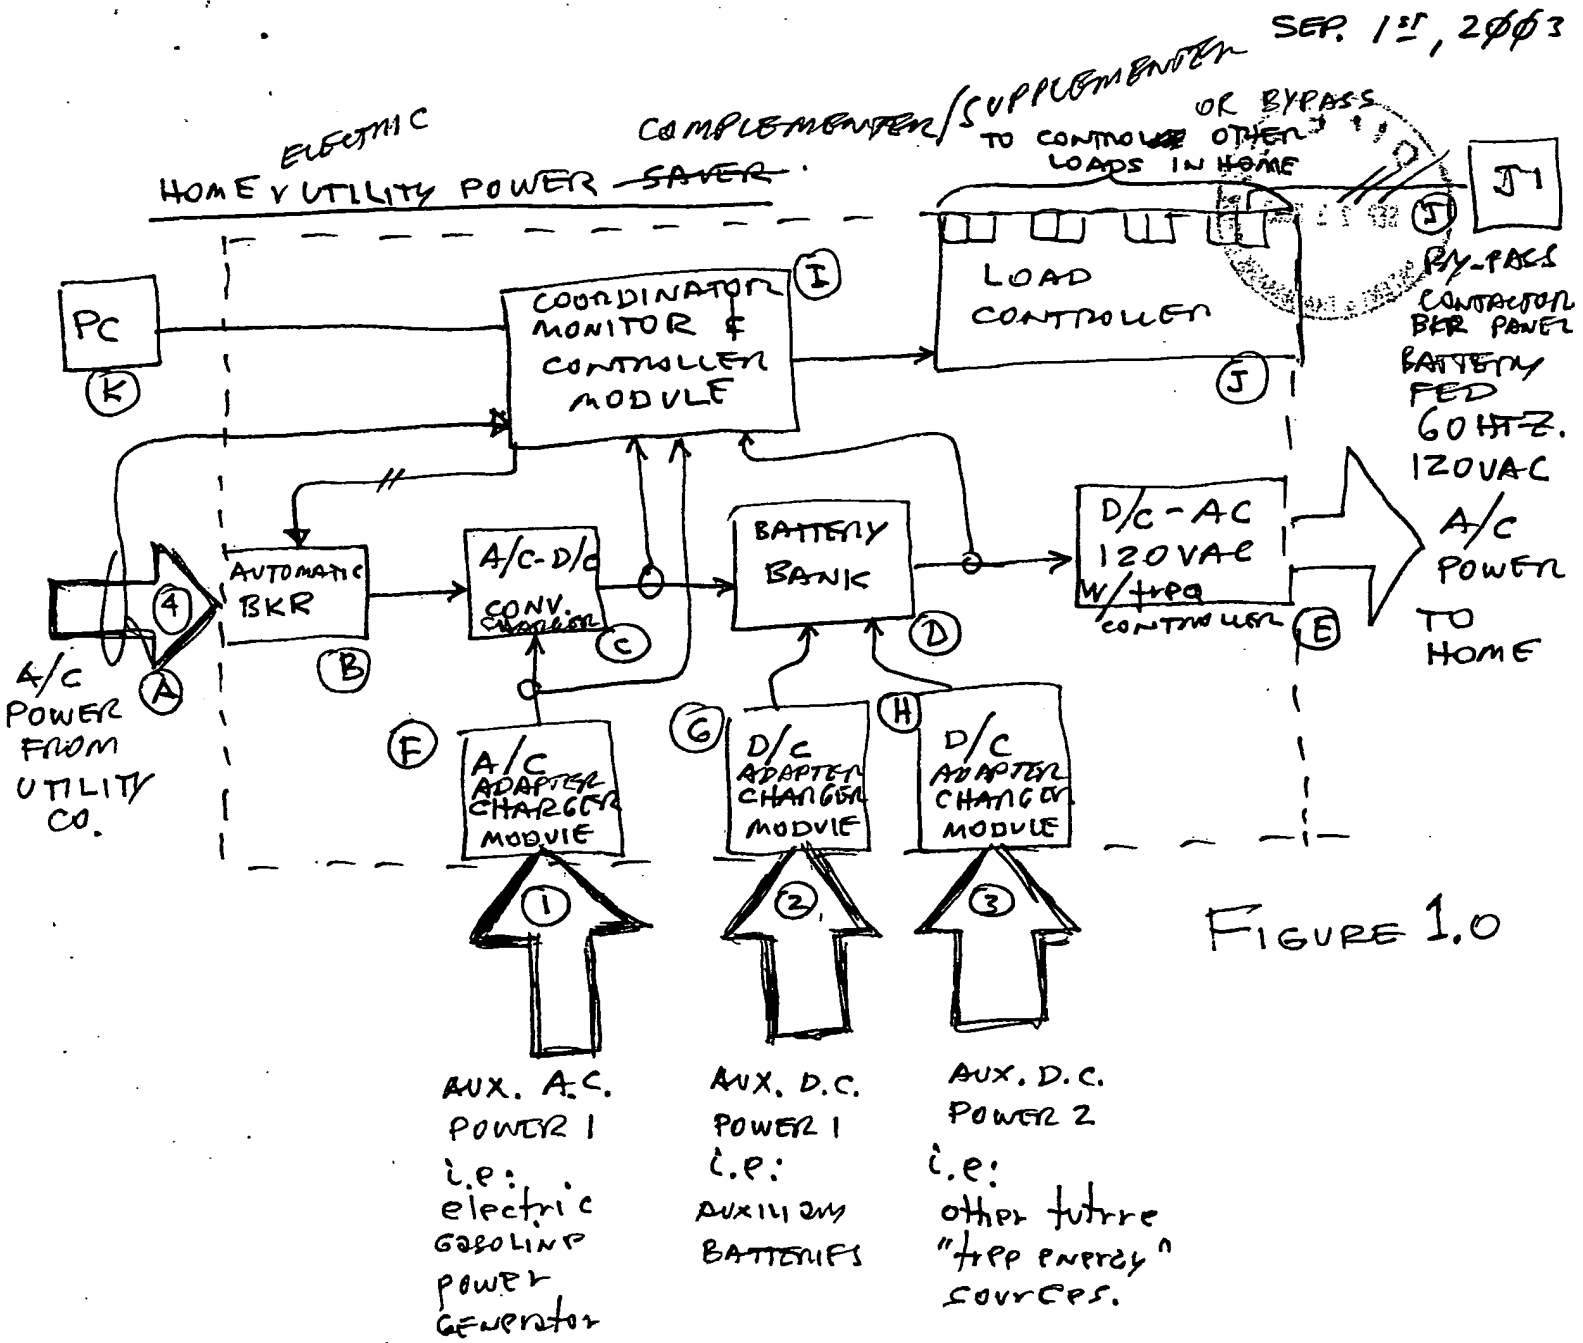 SEP. 1ST, 2003
ELECTRIC
COMPLEMENTER/SUPPLEMENTER
HOME UTILITY POWER SAVER.
OR BYPASS
TO CONTROL OTHER
LOADS IN HOME
J1
J
BY-PASS
CONTACTOR
BKR PANEL
BATTERY
FED
60 HTZ.
120VAC
A/C
POWER
TO
HOME
PC
K
COORDINATOR
MONITOR &
CONTROLLER
MODULE
I
LOAD
CONTROLLER
J
4
A
A/C
POWER
FROM
UTILITY
CO.
AUTOMATIC
BKR
B
A/C-D/C
CONV.
CHARGER
C
BATTERY
BANK
D
D/C-AC
120VAC
W/freq
CONTROLLER
E
F
A/C
ADAPTER
CHARGER
MODULE
G
D/C
ADAPTER
CHARGER
MODULE
H
D/C
ADAPTER
CHARGER
MODULE
1
2
3
FIGURE 1.0
AUX. A.C.
POWER 1
i.e:
electric
GASOLINE
power
GENErator
AUX. D.C.
POWER 1
i.e:
AUXILIARY
BATTERIES
AUX. D.C.
POWER 2
i.e:
other future
"free energy"
sources.